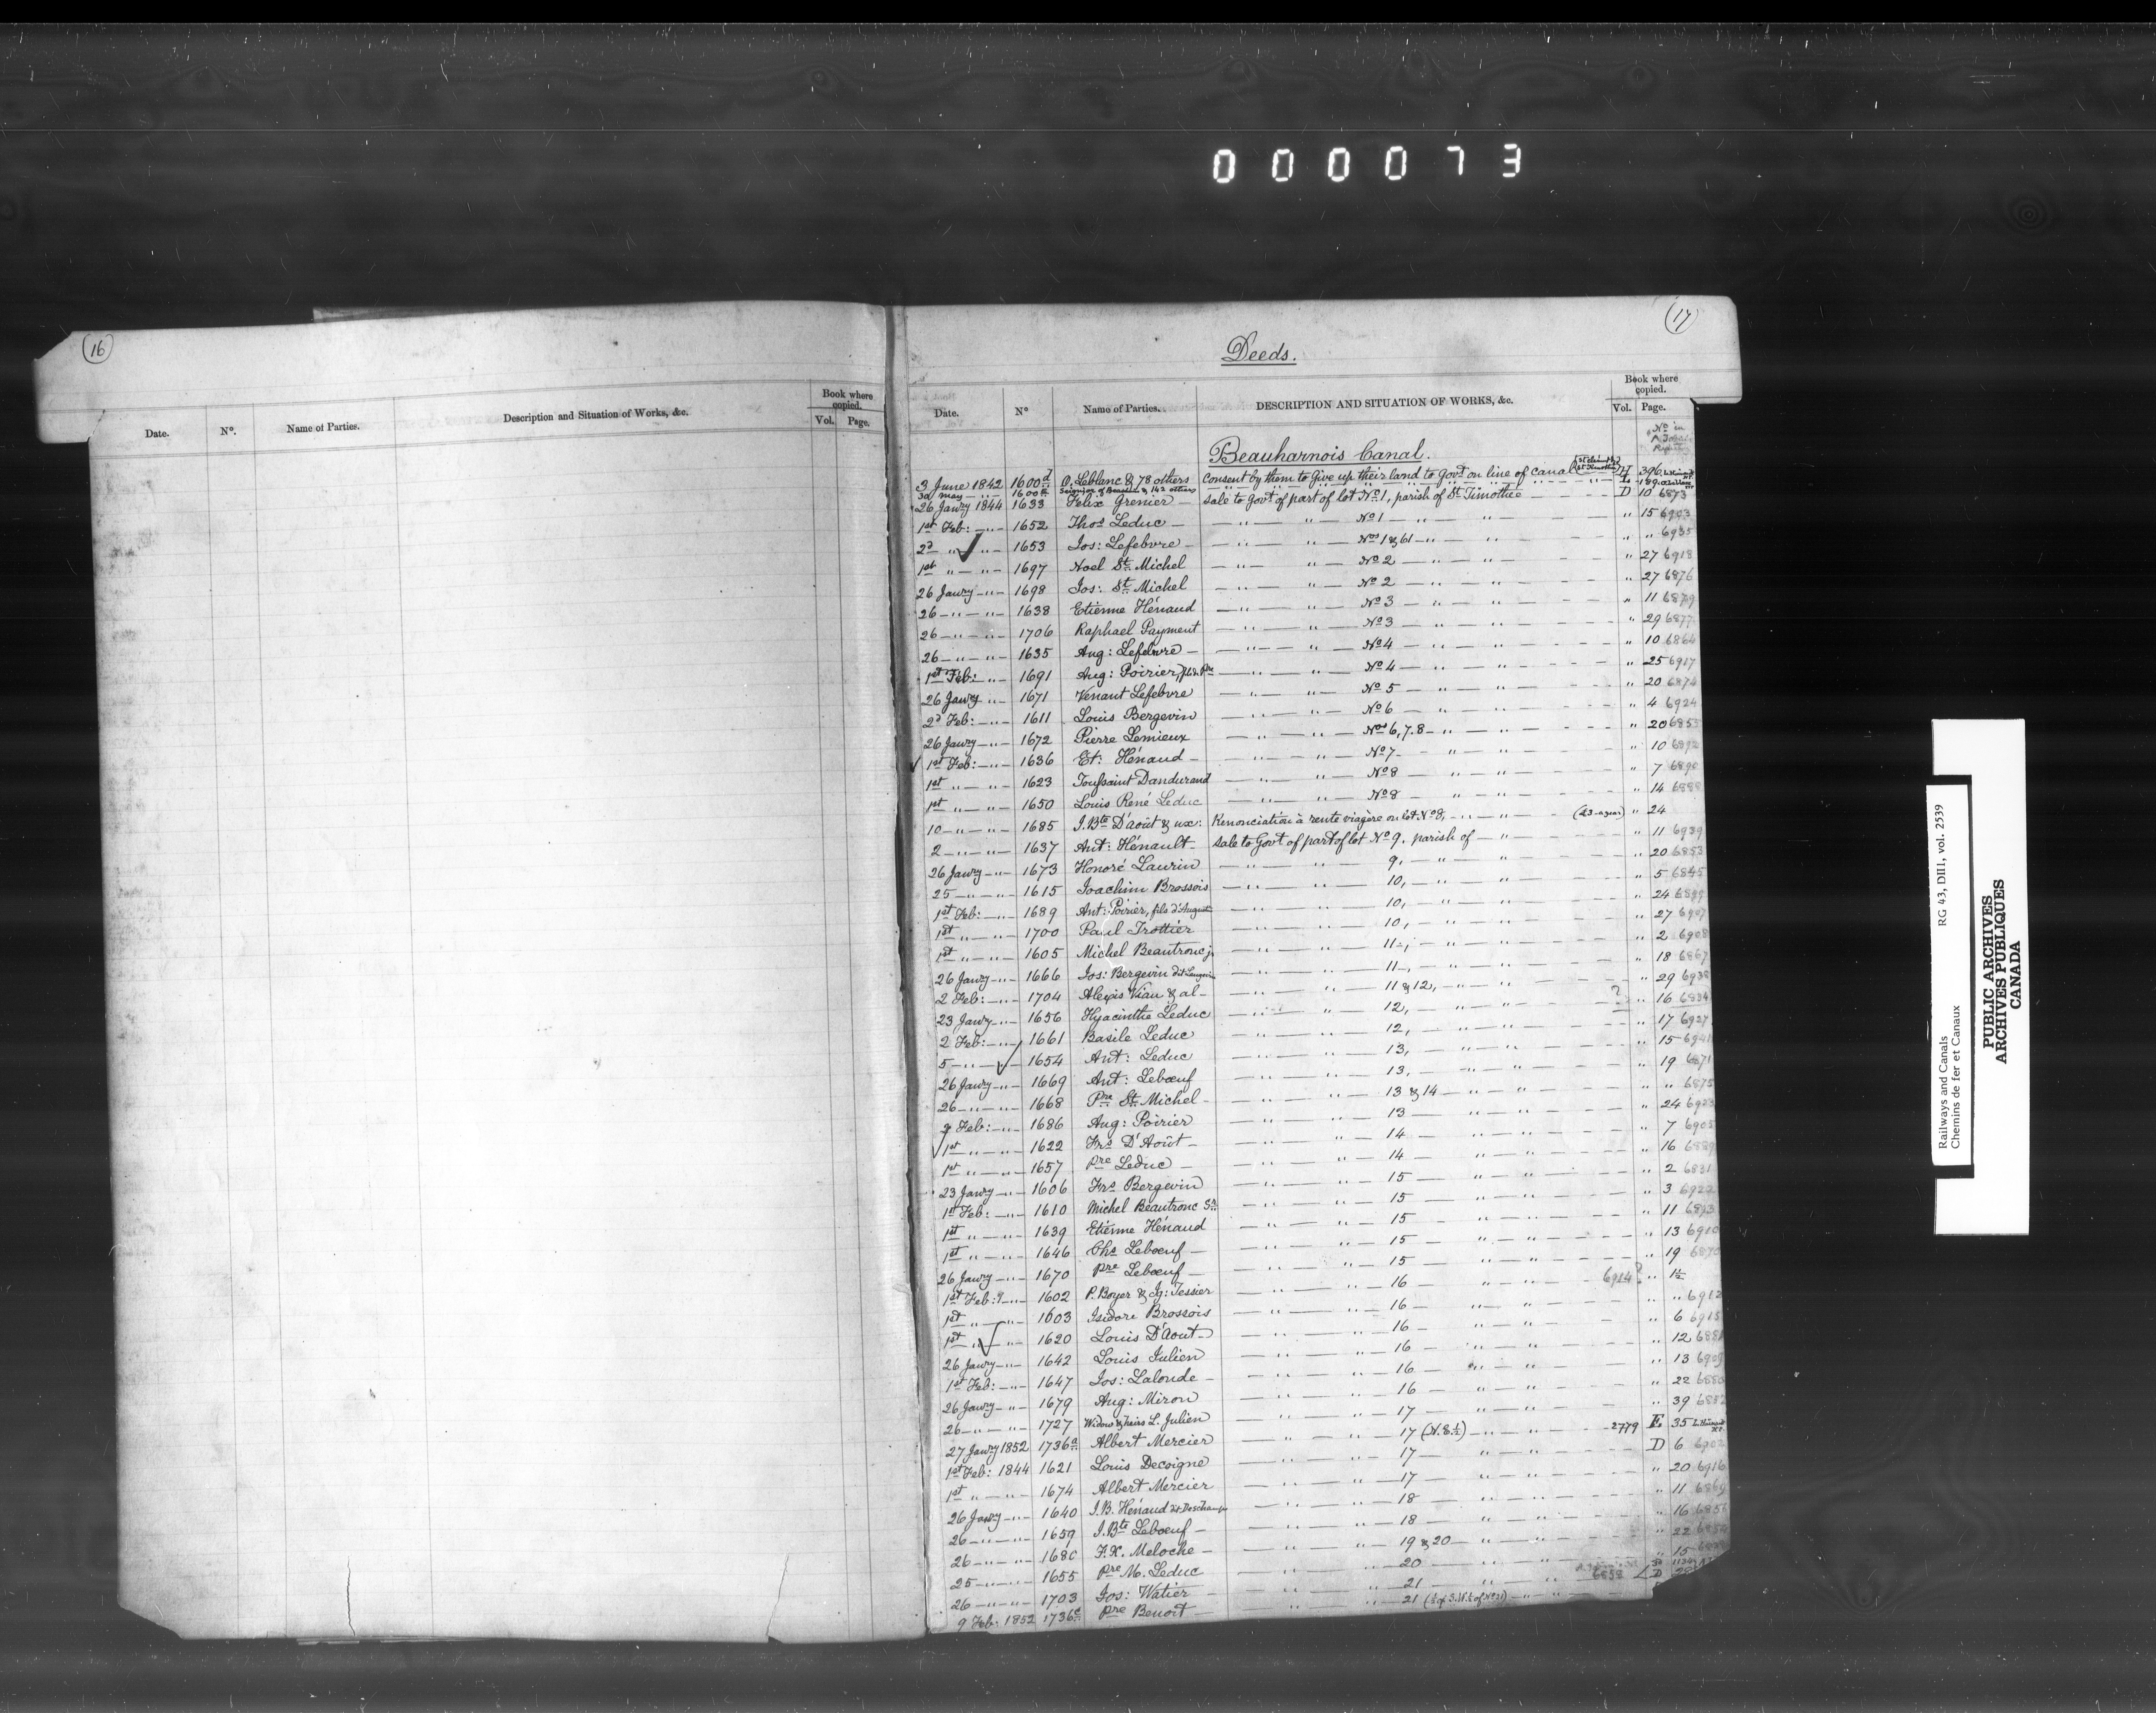 000073
16
Date. N°. Name of Parties. Description and Situation of Works, &c. Book where copied. Vol. Page.
17
Deeds.
Date. N° Name of Parties. DESCRIPTION AND SITUATION OF WORKS, &c. Book where copied. Vol. Page.
Beauharnois Canal.
3 June 1842 1600d O. Leblanc & 78 others Consent by them to Give up their land to Govt on line of canal H 396
30 May — „ — 1600 & 142 others „ L 189
26 Jawry 1844 1633 Felix Grenier — Sale to Govt of part of lot No 1, parish of St Timothée — D 10 6873
1st Feb: — „ — 1652 Thos Leduc — — „ — „ — No 1 — „ — „ — „ 15 6903
2d „ — „ — 1653 Jos: Lefebvre — — „ — „ — Nos 1 & 61 — „ — „ — „ „ 6935
1st „ — „ — 1697 Noel St Michel — „ — „ — No 2 — „ — „ — „ 27 6918
26 Jawry — „ — 1698 Jos: St Michel — „ — „ — No 2 — „ — „ — „ 27 6876
26 — „ — „ — 1638 Etienne Hénaud — „ — „ — No 3 — „ — „ — „ 11 6879
26 — „ — „ — 1706 Raphael Payment — „ — „ — No 3 — „ — „ — „ 29 6877
26 — „ — „ — 1635 Aug: Lefebvre — — „ — „ — No 4 — „ — „ — „ 10 6864
1st Feb: — „ — 1691 Aug: Poirier, — „ — „ — No 4 — „ — „ — „ 25 6917
26 Jawry — „ — 1671 Venant Lefebvre — „ — „ — No 5 — „ — „ — „ 20 6874
2d Feb: — „ — 1611 Louis Bergevin — „ — „ — No 6 — „ — „ — „ 4 6924
26 Jawry — „ — 1672 Pierre Lemieux — „ — „ — Nos 6, 7. 8 — „ — „ — „ 20 6855
1st Feb: — „ — 1636 Et: Hénaud — — „ — „ — No 7 — „ — „ — „ 10 6892
1st „ — „ — 1623 Toussaint Dandurand — „ — „ — No 8 — „ — „ — „ 7 6890
1st „ — „ — 1650 Louis René Leduc — „ — „ — No 8 — „ — „ — „ 14
10 — „ — „ — 1685 J. Bte D'Août & ux: Renonciation à rente viagère on lot No 8, — „ — „ — (£3 - a year) „ 24
2 — „ — „ — 1637 Ant: Hénault — Sale to Govt of part of lot No 9, parish of — „ — „ 11 6939
26 Jawry — „ — 1673 Honoré Laurin — „ — „ — 9, — „ — „ — „ 20 6853
25 — „ — „ — 1615 Joachim Brossois — „ — „ — 10, — „ — „ — „ 5 6845
1st Feb: — „ — 1689 Ant: Poirier, fils d'August — „ — „ — 10, — „ — „ — „ 24 6899
1st „ — „ — 1700 Paul Trottier — „ — „ — 10, — „ — „ — „ 27 6907
1st „ — „ — 1605 Michel Beautronc jr — „ — „ — 11, — „ — „ — „ 2 6908
26 Jawry — „ — 1666 Jos: Bergevin dit Langevin — „ — „ — 11, — „ — „ — „ 18 6867
2 Feb: — „ — 1704 Alexis Viau & al — — „ — „ — 11 & 12, — „ — „ — „ 29 6938
23 Jawry — „ — 1656 Hyacinthe Leduc — „ — „ — 12, — „ — „ — ? „ 16 6834
2 Feb: — „ — 1661 Basile Leduc — „ — „ — 12, — „ — „ — „ 17 6927
5 — „ — „ — 1654 Ant: Leduc — „ — „ — 13, — „ — „ — „ 15 6941
26 Jawry — „ — 1669 Ant: Lebœuf — „ — „ — 13, — „ — „ — „ 19 6871
26 — „ — „ — 1668 Pre St Michel — — „ — „ — 13 & 14 — „ — „ — „ „ 6875
2 Feb: — „ — 1686 Aug: Poirier — „ — „ — 13 — „ — „ — „ 24 6923
1st „ — „ — 1622 Frs D'Août — — „ — „ — 14 — „ — „ — „ 7 6905
1st „ — „ — 1657 Pre Leduc — — „ — „ — 14 — „ — „ — „ 16 6889
23 Jawry — „ — 1606 Frs Bergevin — „ — „ — 15 — „ — „ — „ 2 6831
1st Feb: — „ — 1610 Michel Beautronc Sr — „ — „ — 15 — „ — „ — „ 3 6922
1st „ — „ — 1639 Etienne Hénaud — „ — „ — 15 — „ — „ — „ 11 6893
1st „ — „ — 1646 Chs Lebœuf — — „ — „ — 15 — „ — „ — „ 13 6910
26 Jawry — „ — 1670 Pre Lebœuf — — „ — „ — 15 — „ — „ — „ 19 6870
1st Feb: — „ — 1602 P. Boyer & Ig: Tessier — „ — „ — 16 — „ — „ — 6914? „ 1½
1st „ — „ — 1603 Isidore Brossois — „ — „ — 16 — „ — „ — „ „ 6912
1st „ — „ — 1620 Louis D'Aout — — „ — „ — 16 — „ — „ — „ 6 6915
26 Jawry — „ — 1642 Louis Julien — „ — „ — 16 — „ — „ — „ 12 6881
1st Feb: — „ — 1647 Jos: Lalonde — — „ — „ — 16 — „ — „ — „ 13 6909
26 Jawry — „ — 1679 Aug: Miron — „ — „ — 16 — „ — „ — „ 22 6880
26 — „ — „ — 1727 Widow & heirs L. Julien — „ — „ — 17 — „ — „ — „ 39 6852
27 Jawry 1852 1736a Albert Mercier — „ — „ — 17 (N.E.½) — „ — „ — 2779 E 35
1st Feb: 1844 1621 Louis Decoigne — „ — „ — 17 — „ — „ — D 6 6902
1st „ — „ — 1674 Albert Mercier — „ — „ — 17 — „ — „ — „ 20 6916
26 Jawry — „ — 1640 J. B. Hénaud dit Deschamps — „ — „ — 18 — „ — „ — „ 11 6869
26 — „ — „ — 1659 J. Bte Lebœuf — — „ — „ — 18 — „ — „ — „ 16 6856
26 — „ — „ — 1680 F. X. Meloche — — „ — „ — 19 & 20 — „ — „ — „ 22 6854
25 — „ — „ — 1655 Pre M. Leduc — „ — „ — 20 — „ — „ — „ 15
26 — „ — „ — 1703 Jos: Watier — — „ — „ — 21 — „ — „ — D
9 Feb: 1852 1736c Pre Benoit — — „ — „ — 21 — „ — „ —
Railways and Canals RG 43, DIII 1, vol. 2539
Chemins de fer et Canaux
PUBLIC ARCHIVES
ARCHIVES PUBLIQUES
CANADA